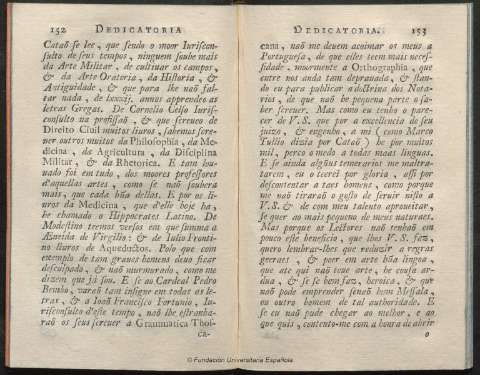 152 DEDICATORIA
Cataõ se lee, que sendo o moor Iuriscon-
sulto de seus tempos, ninguem soube mais
da Arte Militar, de cultiuar os campos,
& da Arte Oratoria, da Historia, &
Antiguidade, & que para lhe naõ fal-
tar nada, de lxxxij. annos aprendeo as
letras Gregas. De Cornelio Celso Iuris-
consulto na profissaõ, & que screueo de
Direito Ciuil muitos liuros, sabemos scre-
uer outros muitos da Philosophia, da Me-
dicina, da Agricultura, da Disciplina
Militar, & da Rhetorica. E tam lou-
uado foi em tudo, dos moores professores
d'aquellas artes, como se naõ soubera
mais, que cada hũa dellas. E por os li-
uros da Medicina, que d'elle hoje ha,
he chamado o Hippocrates Latino. De
Modestino tremos versos em que summa a
Æneida de Virgilio: & de Iulio Fronti-
no liuros de Aqueductos. Polo que com
exemplo de tam graues homens deuo ficar
desculpado, & naõ murmurado, como me
dizem que já sou. E se ao Cardeal Pedro
Bembo, varaõ tam insigne em todas as le-
tras, & a Ioaõ Francisco Fortunio, Iu-
risconsulto d'este tempo, naõ lhe estranha-
raõ os seus screuer a Grammatica Thos-
ca-
DEDICATORIA. 153
cana, naõ me deuem acoimar os meus a
Portuguesa, de que elles teem mais neces-
sidade, mormente a Orthographia, que
entre nos anda tam deprauada, & stan-
do eu para publicar a doctrina dos Nota-
rios, de que naõ he pequena parte o sa-
ber screuer. Mas como eu tenho o pare-
cer de V. S. que por a excellencia de seu
juizo, & engenho, a mi (como Marco
Tullio dizia por Cataõ) he por muitos
mil, perco o medo a todas maas linguas.
E se ainda algũns temerarios me maltra-
tarem, eu o terei por gloria, assi por
descontentar a taes homens, como porque
me naõ tiraraõ o gosto de seruir nisto a
V. S. & de com meu talento aproueitar,
se quer ao mais pequeno de meus naturaes.
Mas porque os Lectores naõ tenhaõ em
pouco este beneficio, que lhes V. S. faz,
quero lembrar-lhes que reduzir a regras
geraes, & poer em arte hũa lingoa,
que ate qui naõ teue arte, he cousa ar-
dua, & se se bem faz, heroica, & que
naõ pode emprender senaõ hum Messala,
ou outro homem de tal authoridade. E
se eu naõ pude chegar ao melhor, e ao
que quis, contento-me com a honra de abrir
o
© Fundación Universitaria Española